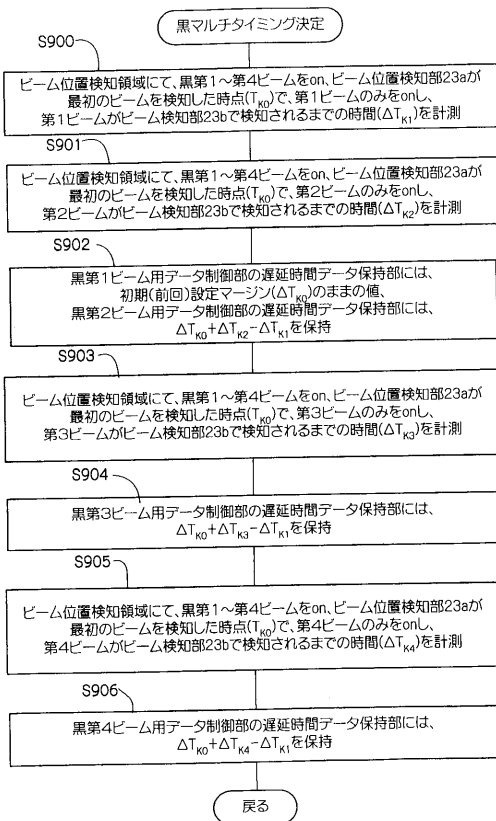 黒マルチタイミング決定
S900
ビーム位置検知領域にて、黒第1～第4ビームをon、ビーム位置検知部23aが
最初のビームを検知した時点(TK0)で、第1ビームのみをonし、
第1ビームがビーム検知部23bで検知されるまでの時間(ΔTK1)を計測
S901
ビーム位置検知領域にて、黒第1～第4ビームをon、ビーム位置検知部23aが
最初のビームを検知した時点(TK0)で、第2ビームのみをonし、
第2ビームがビーム検知部23bで検知されるまでの時間(ΔTK2)を計測
S902
黒第1ビーム用データ制御部の遅延時間データ保持部には、
初期(前回)設定マージン(ΔTK0)のままの値、
黒第2ビーム用データ制御部の遅延時間データ保持部には、
ΔTK0+ΔTK2−ΔTK1を保持
S903
ビーム位置検知領域にて、黒第1～第4ビームをon、ビーム位置検知部23aが
最初のビームを検知した時点(TK0)で、第3ビームのみをonし、
第3ビームがビーム検知部23bで検知されるまでの時間(ΔTK3)を計測
S904
黒第3ビーム用データ制御部の遅延時間データ保持部には、
ΔTK0+ΔTK3−ΔTK1を保持
S905
ビーム位置検知領域にて、黒第1～第4ビームをon、ビーム位置検知部23aが
最初のビームを検知した時点(TK0)で、第4ビームのみをonし、
第4ビームがビーム検知部23bで検知されるまでの時間(ΔTK4)を計測
S906
黒第4ビーム用データ制御部の遅延時間データ保持部には、
ΔTK0+ΔTK4−ΔTK1を保持
戻る